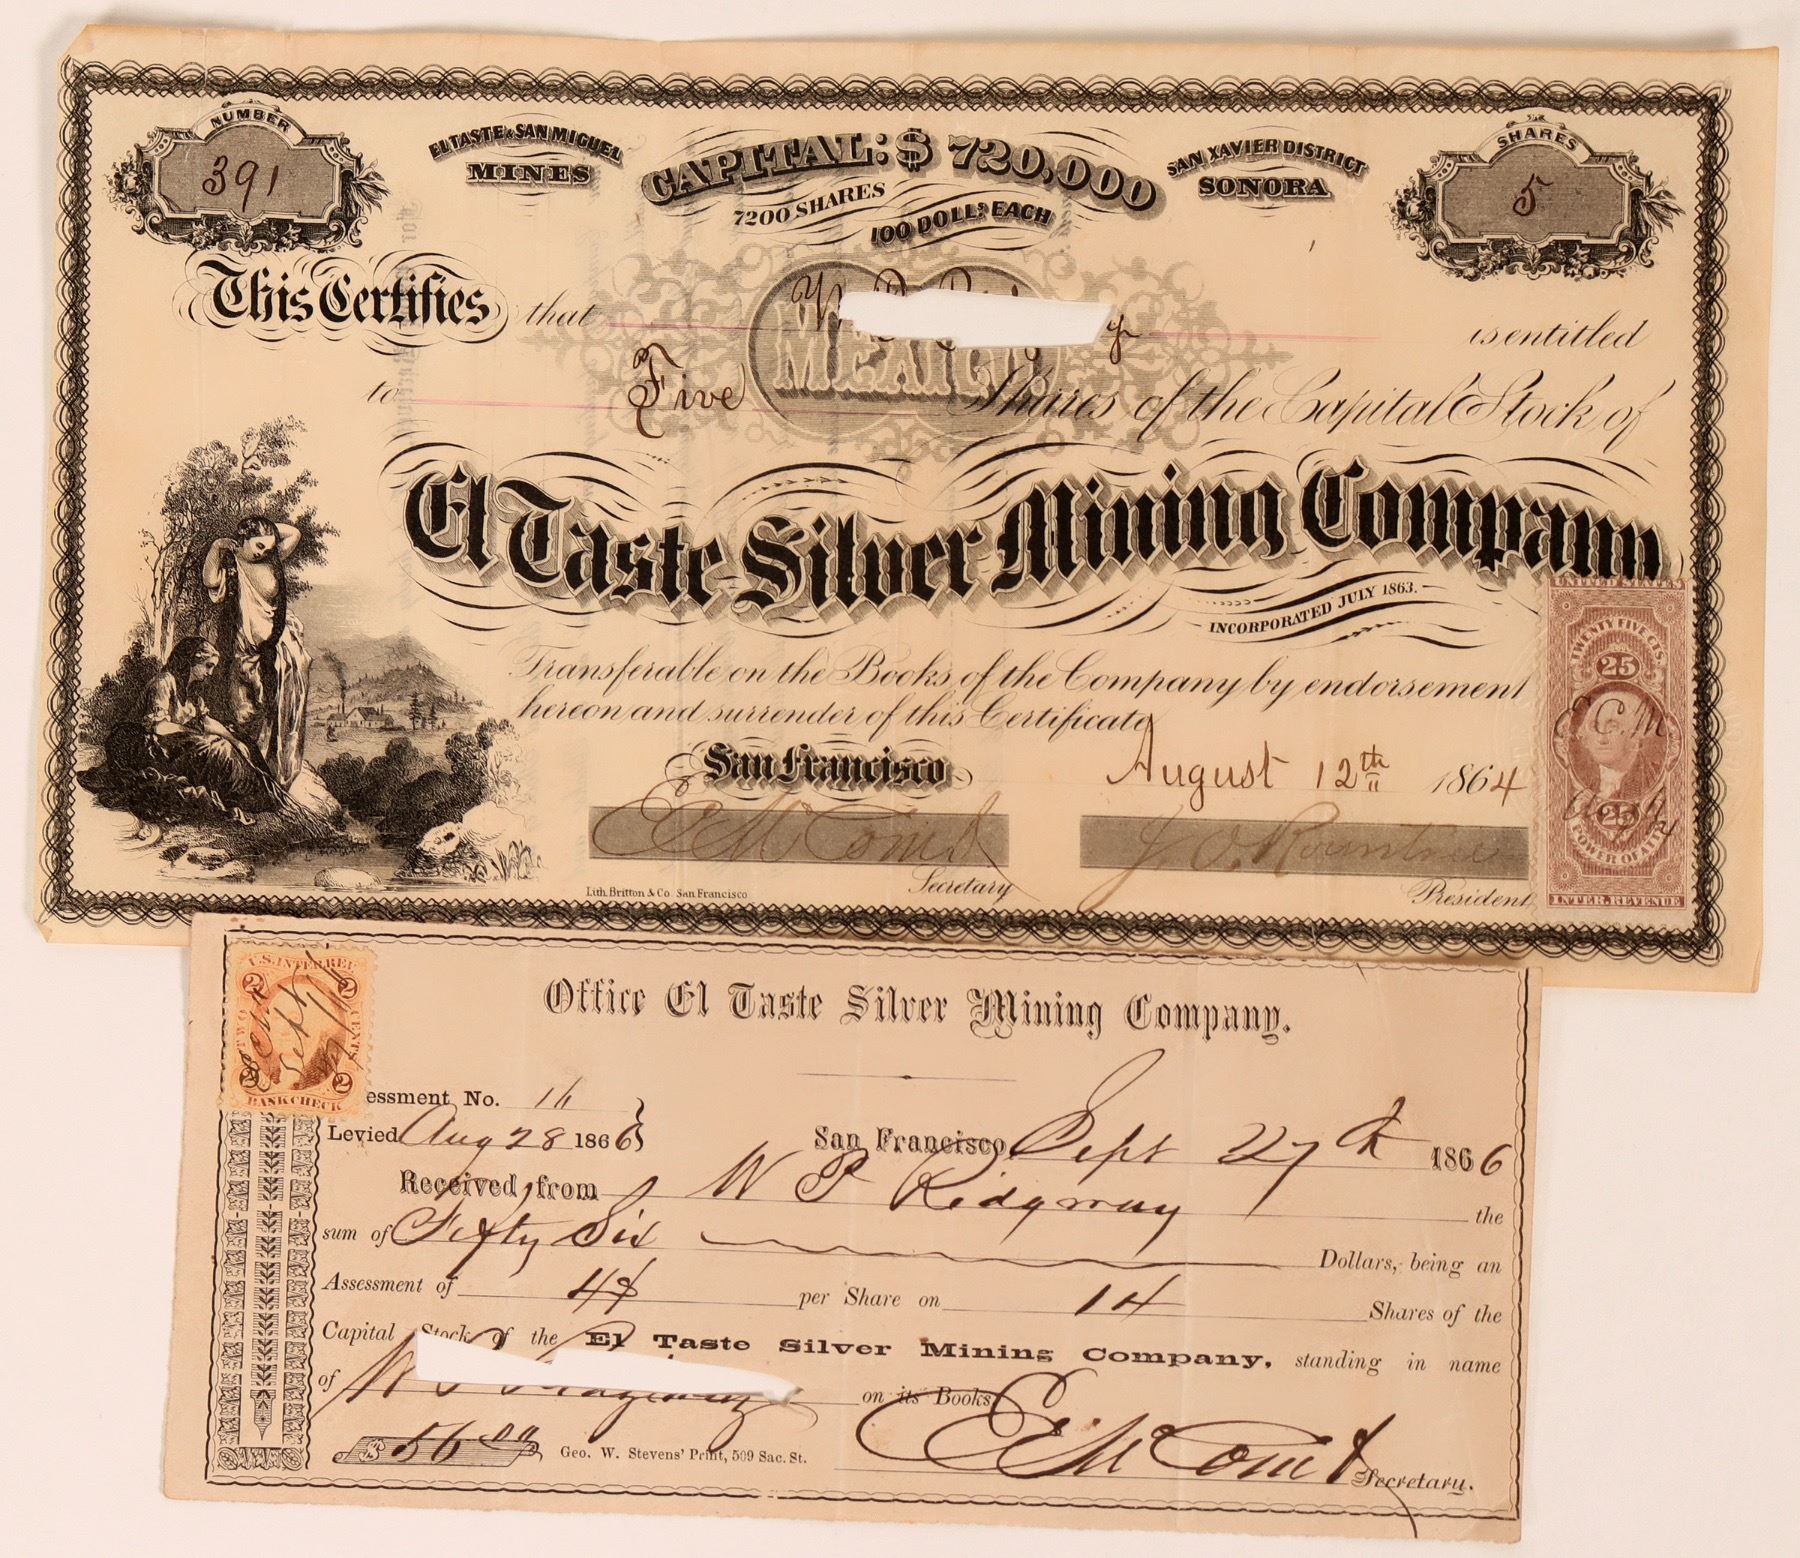 NUMBER
391
EL TASTE & SAN MIGUEL
MINES
CAPITAL: $ 720,000
7200 SHARES
100 DOLLS EACH
SAN XAVIER DISTRICT
SONORA
SHARES
5
This Certifies that is entitled
MEXICO
to Five Shares of the Capital Stock of
El Taste Silver Mining Company
INCORPORATED JULY 1863.
Transferable on the Books of the Company by endorsement
hereon and surrender of this Certificate
San Francisco August 12th 1864
E McComd J. O. Rountree
Secretary President
Lith. Britton & Co. San Francisco
UNITED STATES
TWENTY FIVE CTS.
25
E.C.M.
Aug
25
POWER OF ATT'Y
INTER. REVENUE
U.S. INTER. REV.
2 2
TWO CENTS
Sept
2 2
BANK CHECK
Office El Taste Silver Mining Company.
essment No. 16
Levied Aug 28 1866 San Francisco, Sept 27th 1866
Received from W P Ridgway the
sum of Fifty Six Dollars, being an
Assessment of 4$ per Share on 14 Shares of the
Capital Stock of the El Taste Silver Mining Company, standing in name
of W on its Books
$ 56.00 Geo. W. Stevens' Print, 509 Sac. St. E McComd Secretary.